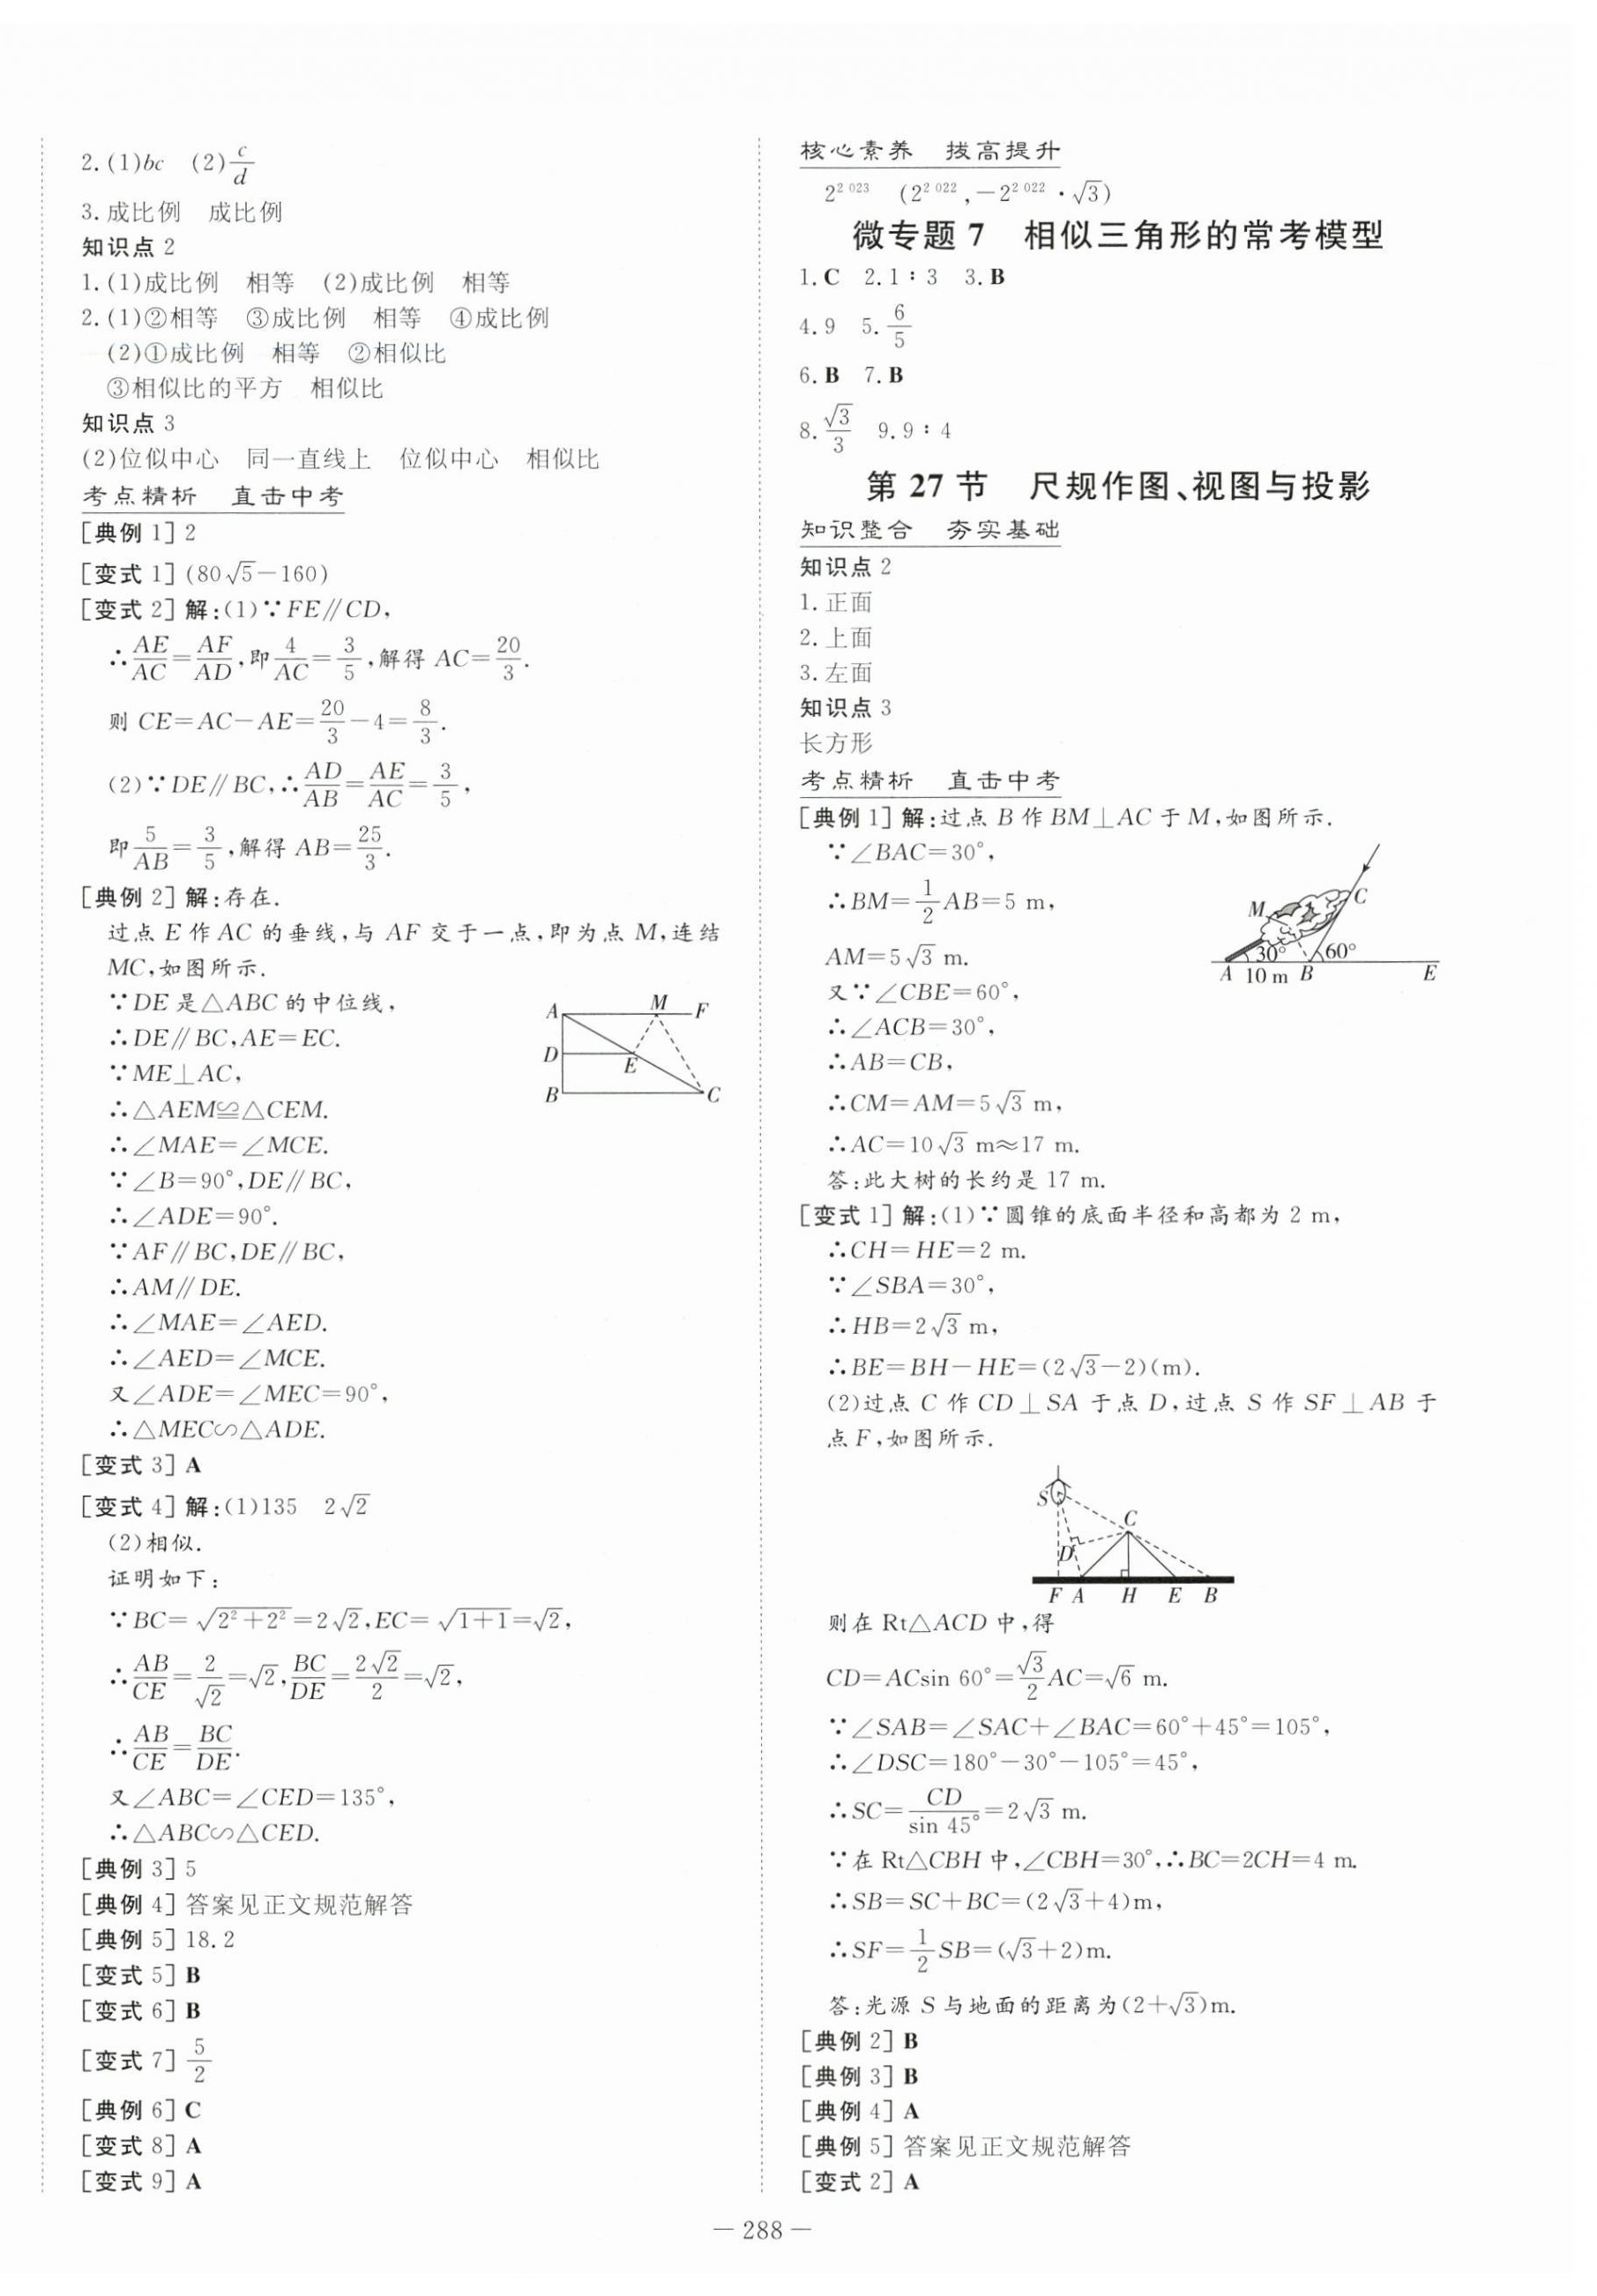 2.(1)bc　(2)c/d
3.成比例　成比例
知识点 2
1.(1)成比例　相等　(2)成比例　相等
2.(1)②相等　③成比例　相等　④成比例
(2)①成比例　相等　②相似比
③相似比的平方　相似比
知识点 3
(2)位似中心　同一直线上　位似中心　相似比
考点精析　直击中考
[典例 1] 2
[变式 1] (80√5－160)
[变式 2] 解:(1)∵FE∥CD,
∴AE/AC=AF/AD,即4/AC=3/5,解得 AC=20/3.
则 CE=AC－AE=20/3－4=8/3.
(2)∵DE∥BC,∴AD/AB=AE/AC=3/5,
即5/AB=3/5,解得 AB=25/3.
[典例 2] 解:存在.
过点 E 作 AC 的垂线,与 AF 交于一点,即为点 M,连结
MC,如图所示.
∵DE 是△ABC 的中位线,
∴DE∥BC,AE=EC.
∵ME⊥AC,
∴△AEM≌△CEM.
∴∠MAE=∠MCE.
∵∠B=90°,DE∥BC,
∴∠ADE=90°.
∵AF∥BC,DE∥BC,
∴AM∥DE.
∴∠MAE=∠AED.
∴∠AED=∠MCE.
又∠ADE=∠MEC=90°,
∴△MEC∽△ADE.
A M F
D E
B C
[变式 3] A
[变式 4] 解:(1)135　2√2
(2)相似.
证明如下:
∵BC=√(2²+2²)=2√2,EC=√(1+1)=√2,
∴AB/CE=2/√2=√2,BC/DE=2√2/2=√2,
∴AB/CE=BC/DE.
又∠ABC=∠CED=135°,
∴△ABC∽△CED.
[典例 3] 5
[典例 4] 答案见正文规范解答
[典例 5] 18.2
[变式 5] B
[变式 6] B
[变式 7] 5/2
[典例 6] C
[变式 8] A
[变式 9] A
核心素养　拔高提升
2^(2 023)　(2^(2 022),－2^(2 022)·√3)
微专题 7　相似三角形的常考模型
1.C　2.1∶3　3.B
4.9　5.6/5
6.B　7.B
8.√3/3　9.9∶4
第 27 节　尺规作图、视图与投影
知识整合　夯实基础
知识点 2
1.正面
2.上面
3.左面
知识点 3
长方形
考点精析　直击中考
[典例 1] 解:过点 B 作 BM⊥AC 于 M,如图所示.
∵∠BAC=30°,
∴BM=1/2AB=5 m,
AM=5√3 m.
又∵∠CBE=60°,
∴∠ACB=30°,
∴AB=CB,
∴CM=AM=5√3 m,
∴AC=10√3 m≈17 m.
答:此大树的长约是 17 m.
M C
30° 60°
A 10 m B E
[变式 1] 解:(1)∵圆锥的底面半径和高都为 2 m,
∴CH=HE=2 m.
∵∠SBA=30°,
∴HB=2√3 m,
∴BE=BH－HE=(2√3－2)(m).
(2)过点 C 作 CD⊥SA 于点 D,过点 S 作 SF⊥AB 于
点 F,如图所示.
S
C
D
F A H E B
则在 Rt△ACD 中,得
CD=ACsin 60°=√3/2AC=√6 m.
∵∠SAB=∠SAC+∠BAC=60°+45°=105°,
∴∠DSC=180°－30°－105°=45°,
∴SC=CD/sin 45°=2√3 m.
∵在 Rt△CBH 中,∠CBH=30°,∴BC=2CH=4 m.
∴SB=SC+BC=(2√3+4)m,
∴SF=1/2SB=(√3+2)m.
答:光源 S 与地面的距离为(2+√3)m.
[典例 2] B
[典例 3] B
[典例 4] A
[典例 5] 答案见正文规范解答
[变式 2] A
— 288 —